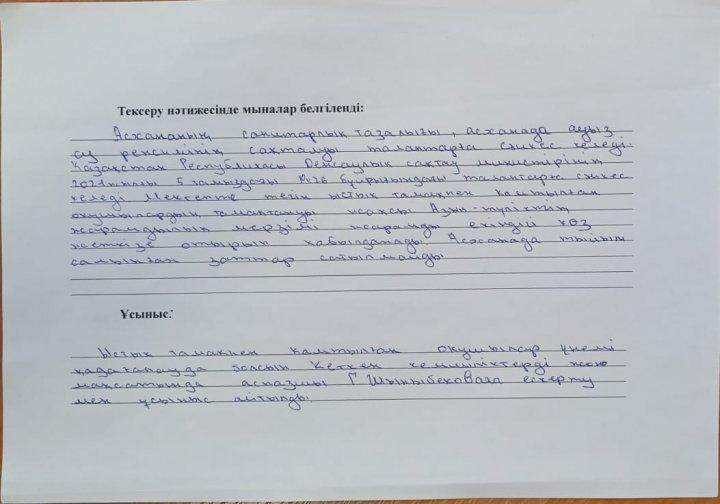 Тексеру нәтижесінде мыналар белгіленді:
Асхананың санитарлық тазалығы, асханада ауыз
су режимінің сақталуы талаптарға сәйкес келеді.
Қазақстан Республикасы Денсаулық сақтау министірінің
2021 жылғы 5 тамыздағы №76 бұйрығындағы талаптарға сәйкес
келеді Мектепте тегін ыстық тамақпен қамтылған
оқушылардың тамақтануы жақсы. Азық-түліктің
жарамдылық мерзімі жарамды екіндігі көз
жеткізе отырып қабылданады. Асханада тыйым
салынған заттар сатылмайды.
Ұсыныс:
Ыстық тамақпен қамтылған оқушылар үнемі
қадағалауда болсын Кеткен кемшіліктерді жою
мақсатында аспазшы Г Шыныбековаға ескерту
мен ұсыныс айтылды.